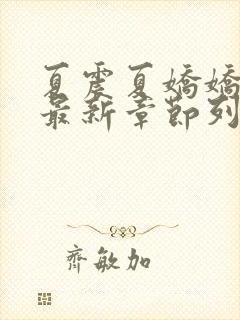 夏震夏嬌嬌
最新章節列
齊敏加